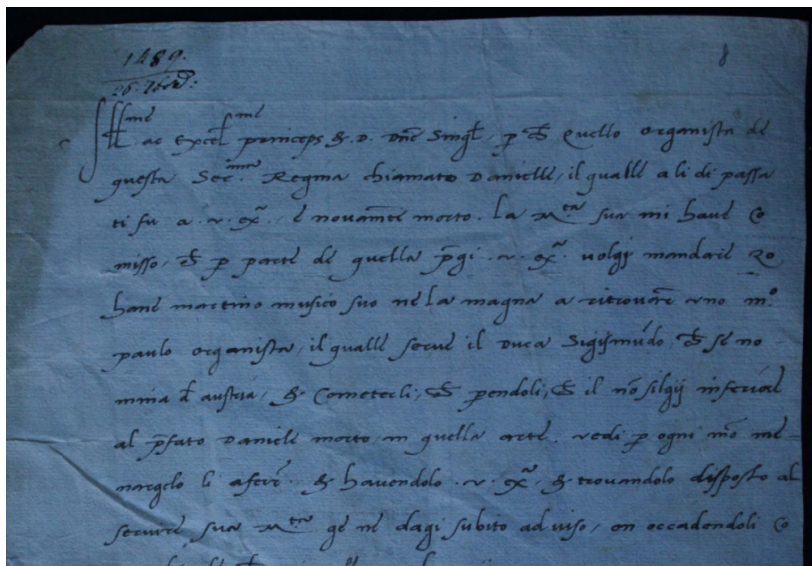 1489.
8
26.
Ill me ac Excel me princeps & D. Dne Singl p Quello organista de
questa Ser. ma Regina chiamato Danielle, il qualle a li di passa
ti fu a. v. ex. a è novamte morto. la M. ta sua mi have co
misso, p parte de quella pgi. v. ex. a volgij mandare Zo
hane martino musico suo ne la magna a ritrovare uno m. o
paulo organista, il qualle serve il Duca Sigismudo, se no
mina d austria, & Cometerli, pendoli, il no silgij inferior
al pfato Daniele morto, in quella arte. vedi p ogni mo me
nargelo li aferr. & havendolo. v. ex. a & trovandolo disposto al
servire sua M. ta ge ne dagi subito adviso, on accadendoli co